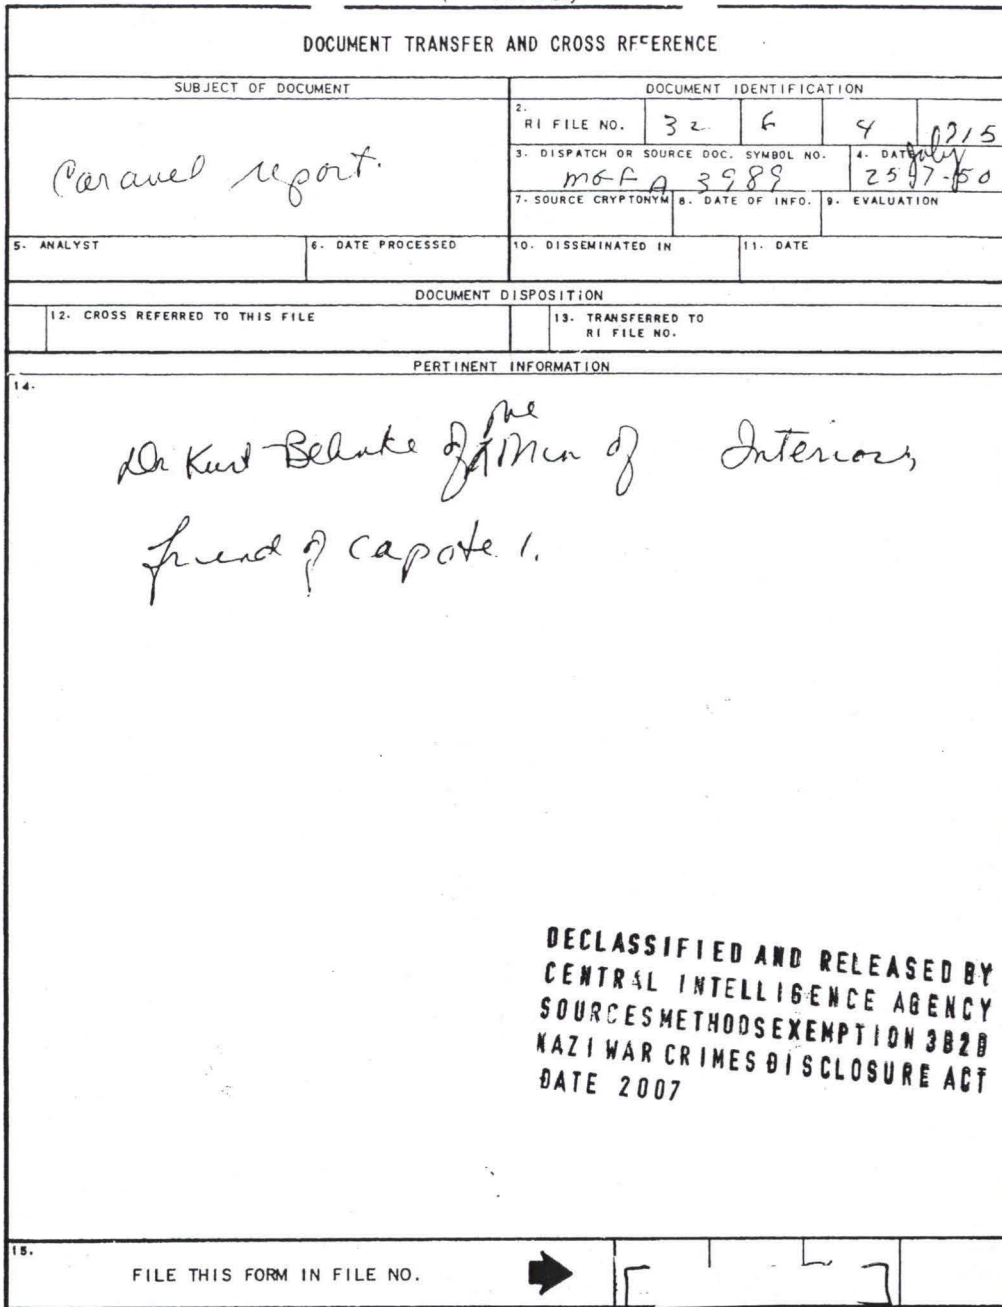 DOCUMENT TRANSFER AND CROSS REFERENCE
SUBJECT OF DOCUMENT
DOCUMENT IDENTIFICATION
Caravel report.
2.
RI FILE NO. 32 6 4
3. DISPATCH OR SOURCE DOC. SYMBOL NO.
MGFA 3989
4. DATE
July
25 7-50
7. SOURCE CRYPTONYM
8. DATE OF INFO.
9. EVALUATION
5. ANALYST
6. DATE PROCESSED
10. DISSEMINATED IN
11. DATE
DOCUMENT DISPOSITION
12. CROSS REFERRED TO THIS FILE
13. TRANSFERRED TO
RI FILE NO.
PERTINENT INFORMATION
14.
Dr Kurt Behnke of the Min of Interior,
friend of Capote 1.
DECLASSIFIED AND RELEASED BY
CENTRAL INTELLIGENCE AGENCY
SOURCESMETHODSEXEMPTION 3B2B
NAZI WAR CRIMES DISCLOSURE ACT
DATE 2007
15.
FILE THIS FORM IN FILE NO.